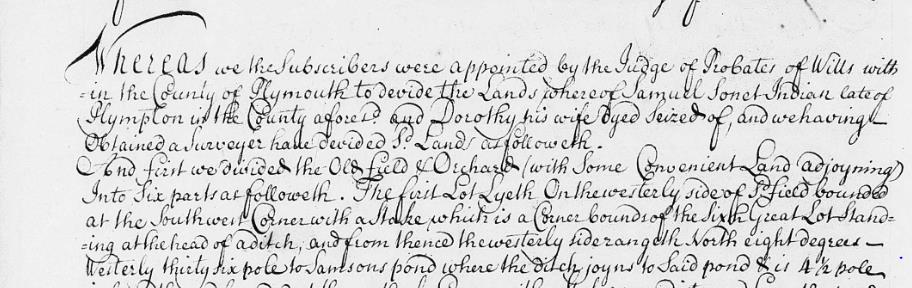 Whereas we the Subscribers were appointed by the Judge of Probates of Wills with
=in the County of Plymouth to devide the Lands whereof Samuel Sonet Indian late of
Plympton in the County afores.d and Dorothy his wife Dyed Seized of, and we having
Obtained a Surveyer have devided S.d Lands as followeth.
And first we divided the Old field & Orchard (with Some Convenient Land adjoyning)
Into Six parts as followeth. The first Lot Lyeth On the westerly side of S.d field bounded
at the Southwest Corner with a Stake which is a Corner bounds of the Sixth Great Lot Stand=
=ing at the head of a ditch, and from thence the westerly side rangeth North eight degrees
Westerly thirty six pole to Samsons pond where the ditch joyns to Said pond & is 4 1/2 pole